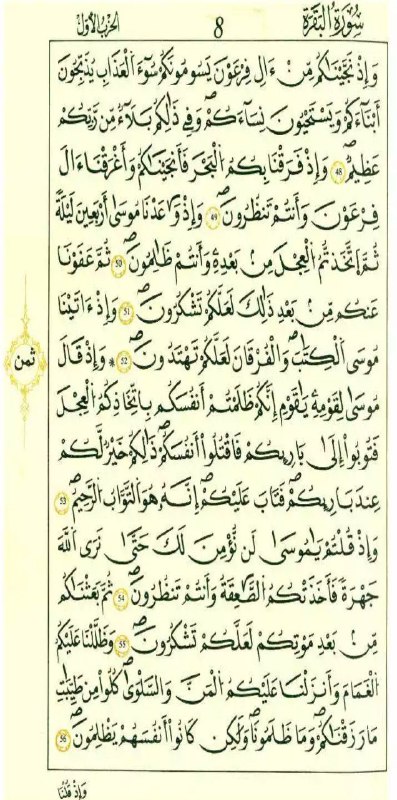 سُورَةُ الْبَقَرَةِ 8 الحِزْبُ الأَوَّلُ
وَإِذْ نَجَّيْنَاكُم مِّنْ ءَالِ فِرْعَوْنَ يَسُومُونَكُمْ سُوٓءَ الْعَذَابِ يُذَبِّحُونَ
أَبْنَآءَكُمْ وَيَسْتَحْيُونَ نِسَآءَكُمْۖ وَفِي ذَٰلِكُم بَلَآءٌ مِّن رَّبِّكُمْ
عَظِيمٌۖ 48 وَإِذْ فَرَقْنَا بِكُمُ الْبَحْرَ فَأَنجَيْنَاكُمْ وَأَغْرَقْنَا ءَالَ
فِرْعَوْنَ وَأَنتُمْ تَنظُرُونَۖ 49 وَإِذْ وَٰعَدْنَا مُوسَىٰ أَرْبَعِينَ لَيْلَةً
ثُمَّ اَتَّخَذتُّمُ الْعِجْلَ مِنۢ بَعْدِهِ وَأَنتُمْ ظَٰلِمُونَۖ 50 ثُمَّ عَفَوْنَا
عَنكُم مِّنۢ بَعْدِ ذَٰلِكَ لَعَلَّكُمْ تَشْكُرُونَۖ 51 وَإِذْ ءَاتَيْنَا
مُوسَى الْكِتَٰبَ وَالْفُرْقَانَ لَعَلَّكُمْ تَهْتَدُونَۖ 52 * وَإِذْ قَالَ
ثمن
مُوسَىٰ لِقَوْمِهِ يَٰقَوْمِ إِنَّكُمْ ظَلَمْتُمْ أَنفُسَكُم بِاتِّخَاذِكُمُ الْعِجْلَ
فَتُوبُوٓاْ إِلَىٰ بَارِئِكُمْ فَاقْتُلُوٓاْ أَنفُسَكُمْۖ ذَٰلِكُمْ خَيْرٌ لَّكُمْ
عِندَ بَارِئِكُمْۖ فَتَابَ عَلَيْكُمْۖ إِنَّهُ هُوَ التَّوَّابُ الرَّحِيمُۖ 53
وَإِذْ قُلْتُمْ يَٰمُوسَىٰ لَن نُّؤْمِنَ لَكَ حَتَّىٰ نَرَى اللَّهَ
جَهْرَةً فَأَخَذَتْكُمُ الصَّٰعِقَةُ وَأَنتُمْ تَنظُرُونَۖ 54 ثُمَّ بَعَثْنَٰكُم
مِّنۢ بَعْدِ مَوْتِكُمْ لَعَلَّكُمْ تَشْكُرُونَۖ 55 وَظَلَّلْنَا عَلَيْكُمُ
الْغَمَامَ وَأَنزَلْنَا عَلَيْكُمُ الْمَنَّ وَالسَّلْوَىٰۖ كُلُواْ مِن طَيِّبَٰتِ
مَا رَزَقْنَٰكُمْۖ وَمَا ظَلَمُونَاۖ وَلَٰكِن كَانُوٓاْ أَنفُسَهُمْ يَظْلِمُونَۖ 56
وَإِذْ قُلْنَا